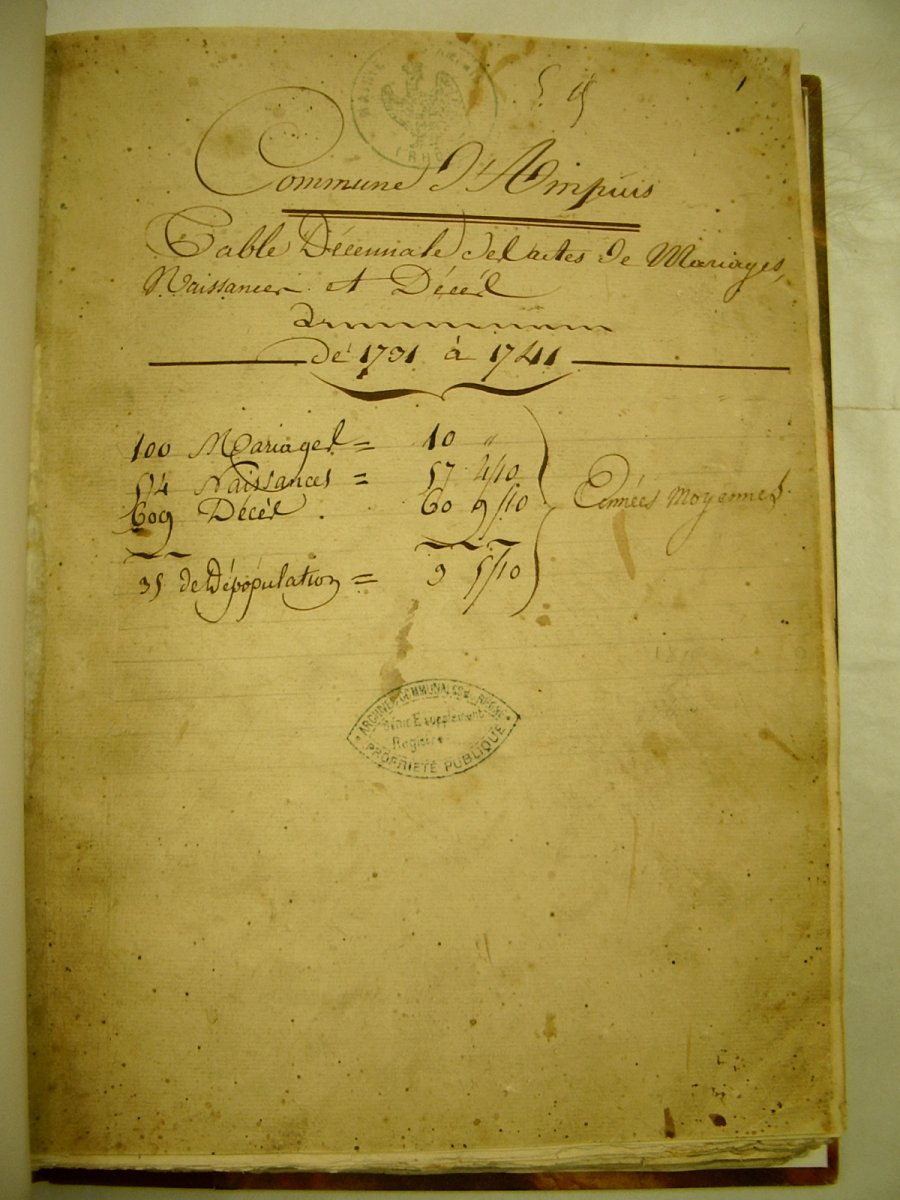 MAIRIE
1
Commune d'Ampuis
Table Décennale des actes de Mariages,
Naissances et Décès
de 1731 à 1741
100 Mariages = 10 "
574 Naissances = 57 4/10
609 Décès . 60 9/10
Années Moyennes
35 de Dépopulation = 3 5/10
ARCHIVES COMMUNALES RHÔNE
Série E supplément
Registre
PROPRIETÉ PUBLIQUE